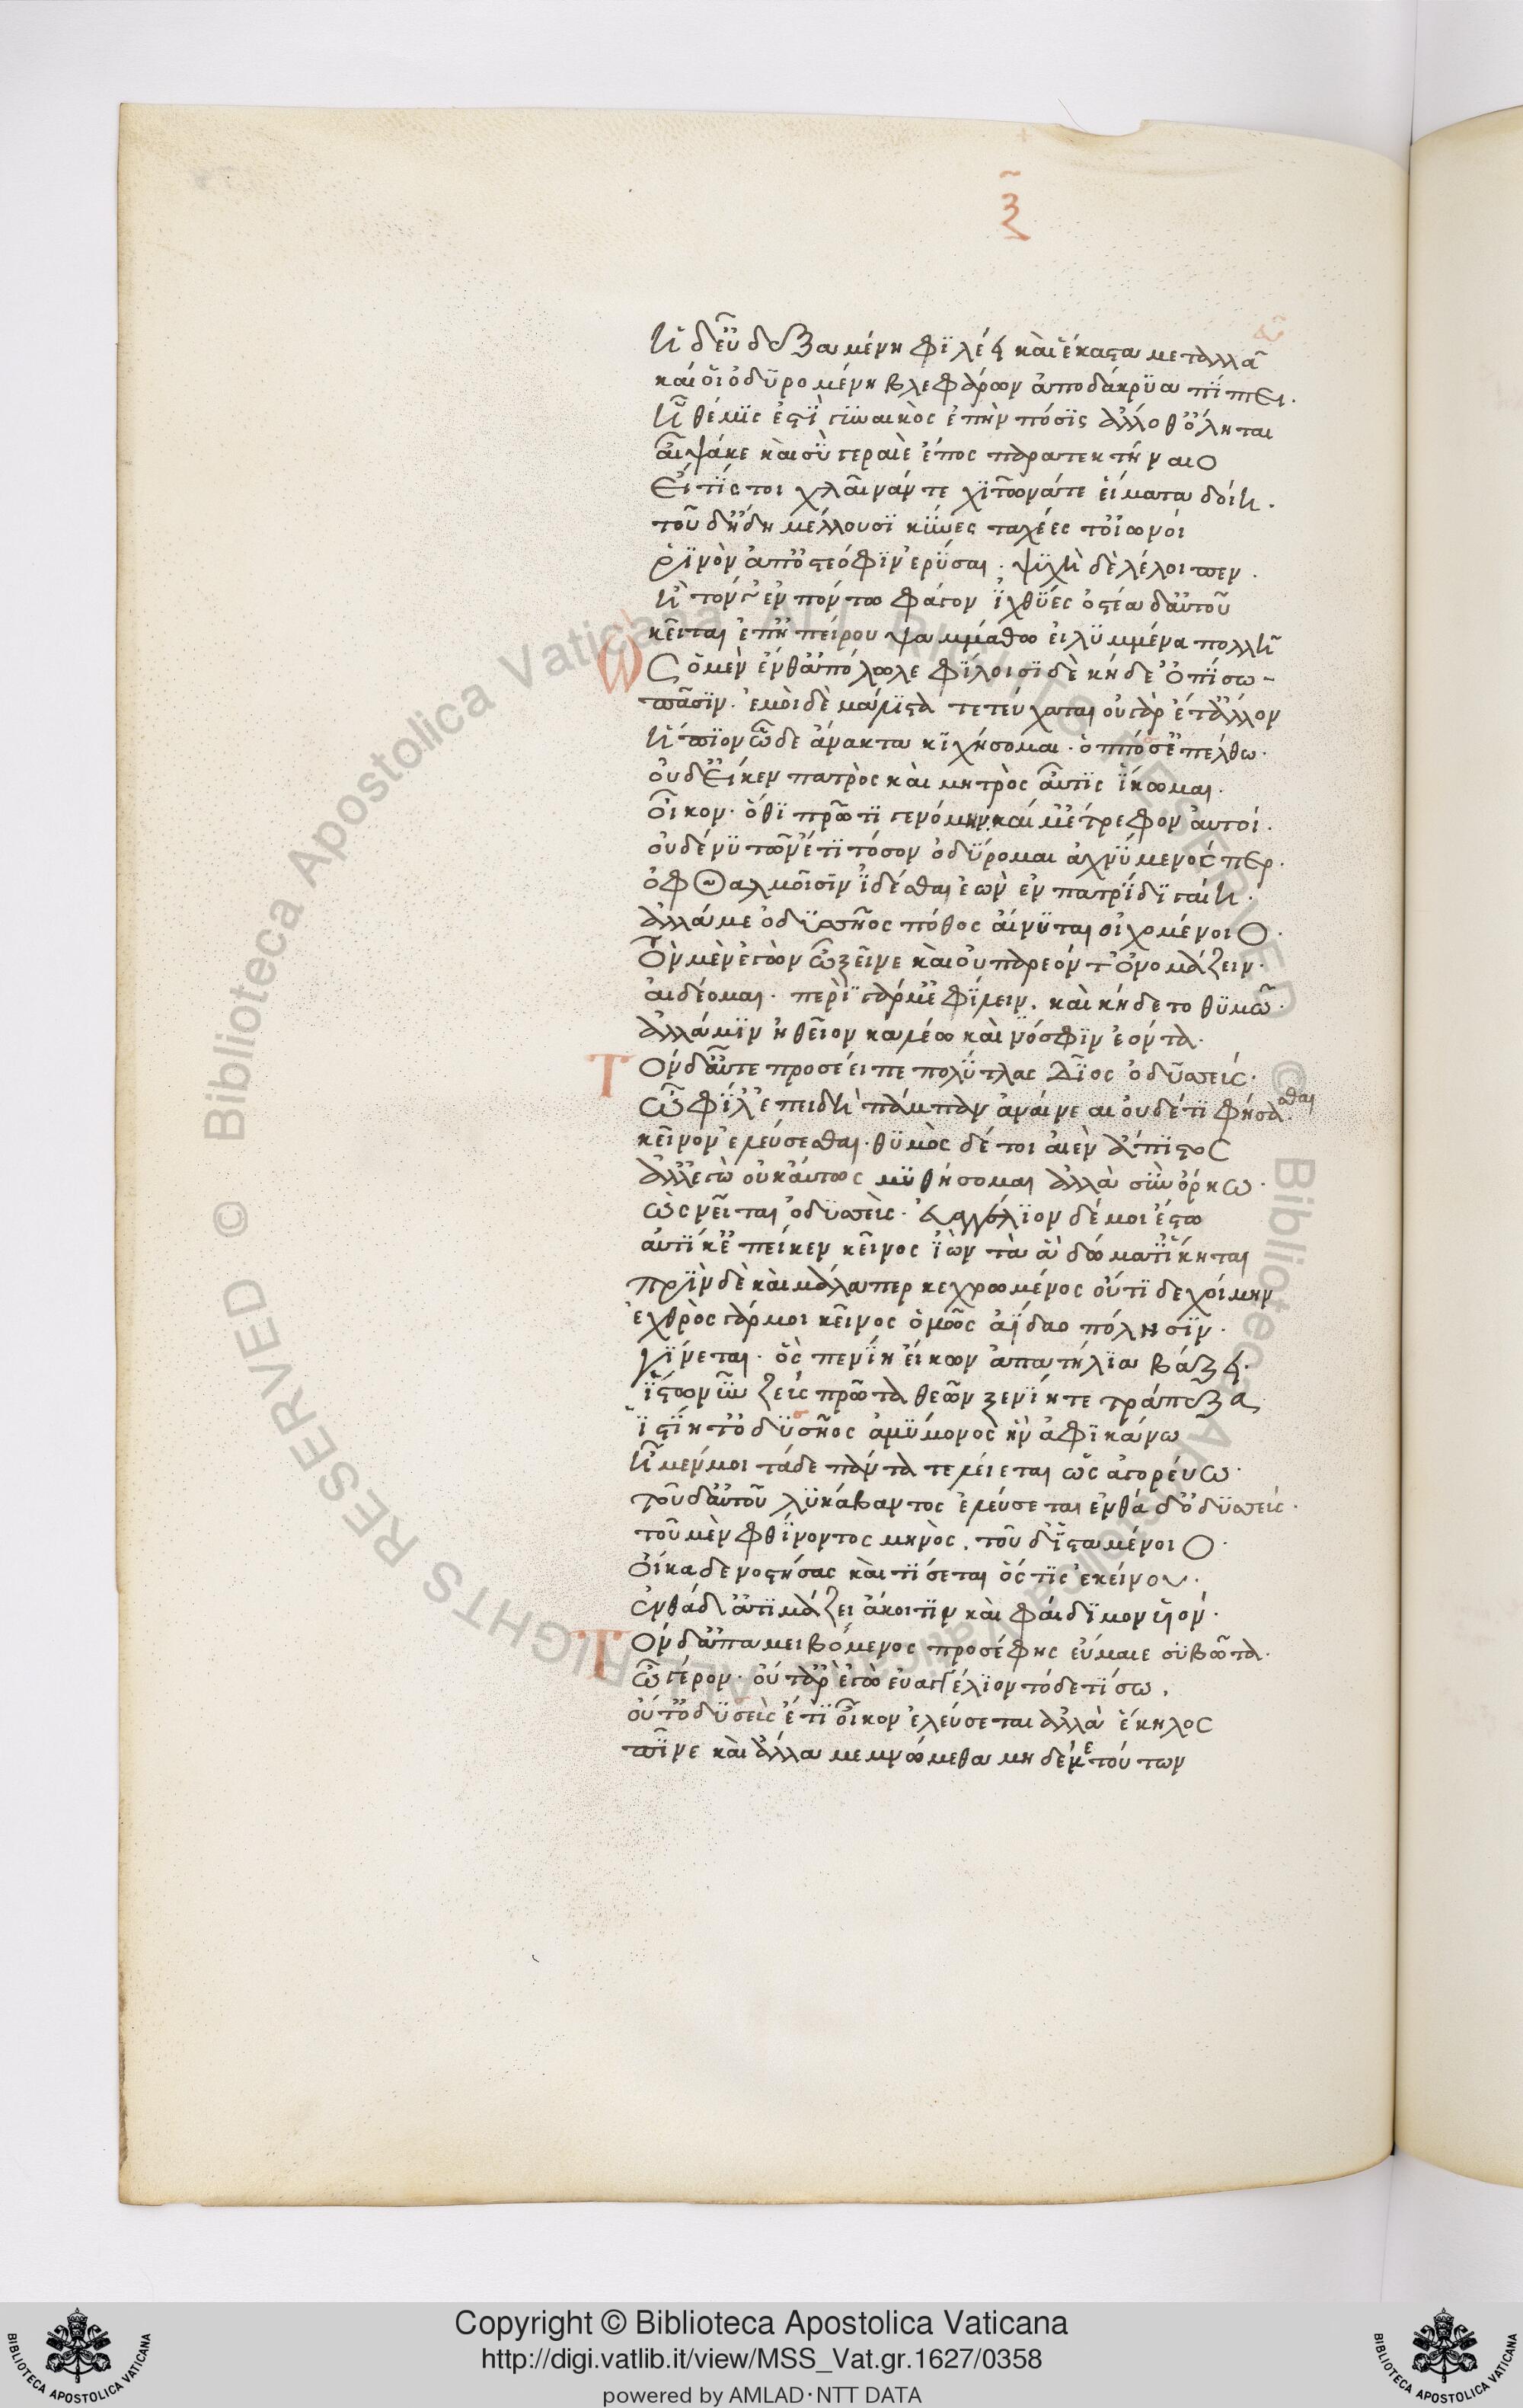 ξ
ἡ δ' εὖ δεξαμένη φιλέει καὶ ἕκαστα μεταλλᾶ
καί οἱ ὀδυρομένη βλεφάρων ἄπο δάκρυα πίπτει.
ἣ θέμις ἐστὶ γυναικὸς ἐπὴν πόσις ἄλλοθ' ὄληται
αἶψά κε καὶ σὺ γεραιὲ ἔπος παρατεκτήναιο
Εἴ τίς τοι χλαῖναν τε χιτῶνά τε εἵματα δοίη.
τοῦ δ' ἤδη μέλλουσι κύνες ταχέες τ' οἰωνοί
ῥινὸν ἀπ' ὀστεόφιν ἐρύσαι. ψυχὴ δὲ λέλοιπεν.
ἢ τόν γ' ἐν πόντω φάγον ἰχθύες ὀστέα δ' αὐτοῦ
κεῖται ἐπ' ἠπείρου ψαμμάθω εἰλυμμένα πολλῆ
Ὣς ὁ μὲν ἔνθ' ἀπόλωλε φίλοισι δὲ κήδε' ὀπίσω
πᾶσιν. ἐμοὶ δὲ μάλιστα τετεύχαται οὐ γὰρ ἔτ' ἄλλον
ἤπιον ὧδε ἄνακτα κιχήσομαι. ὁππόσ' ἐπέλθω.
οὐδ' εἴ κεν πατρὸς καὶ μητρὸς αὖτις ἵκωμαι.
οἶκον. ὅθι πρῶτι γενόμην καί μ' ἔτρεφον αὐτοί.
οὐδέ νυ τῶν ἔτι τόσον ὀδύρομαι ἀχνύμενός περ.
ὀφθαλμοῖσιν ἰδέσθαι ἐὼν ἐν πατρίδι γαίη.
ἀλλά με ὀδυσσῆος πόθος αἴνυται οἰχομένοιο.
Τὸν μὲν ἐγὼν ὦ ξεῖνε καὶ οὐ παρεόντ' ὀνομάζειν.
αἰδέομαι. περὶ γάρ μ' ἐφίλειν. καὶ κήδετο θυμῶ.
ἀλλά μιν ἠθεῖον καλέω καὶ νόσφιν ἐόντα.
Τὸν δ' αὖτε προσέειπε πολύτλας δῖος ὀδυσσεύς.
ὦ φίλ' ἐπειδὴ πάμπαν ἀναίνεαι οὐδέτι φῆσθα
κεῖνον ἐλεύσεσθαι. θυμὸς δέ τοι αἰὲν ἄπιστος
ἀλλ' ἐγὼ οὐκ αὔτως μυθήσομαι ἀλλὰ σὺν ὅρκω.
ὡς νεῖται ὀδυσσεὺς. εὐαγγέλιον δέ μοι ἔστω
αὐτίκ' ἐπεί κεν κεῖνος ἰὼν τὰ ἃ δώμαθ' ἵκηται
πρὶν δὲ καὶ μάλα περ κεχρωμένος οὔτι δεχοίμην
ἐχθρὸς γάρ μοι κεῖνος ὁμῶς ἀΐδαο πύλησιν.
γίνεται. ὃς πενίη εἴκων ἀπατήλια βάζει.
ἴστω νῦν ζεὺς πρῶτα θεῶν ξενίη τε τράπεζα
ἱστίη τ' ὀδυσῆος ἀμύμονος ἣν ἀφικάνω
ἦ μέν μοι τάδε πάντα τελείεται ὡς ἀγορεύω.
τοῦ δ' αὐτοῦ λυκάβαντος ἐλεύσεται ἐνθάδ' ὀδυσσεύς.
τοῦ μὲν φθίνοντος μηνὸς. τοῦ δ' ἱσταμένοιο.
οἴκαδε νοστήσας καὶ τίσεται ὅς τις ἐκείνου.
ἐνθάδ' ἀτιμάζει ἄκοιτιν καὶ φαίδιμον υἱόν.
Τὸν δ' ἀπαμειβόμενος προσέφης εὔμαιε συβῶτα.
ὦ γέρον. οὔτ' ἂρ ἐγὼ εὐαγγέλιον τόδε τίσω.
οὔτ' ὀδυσεὺς ἔτι οἶκον ἐλεύσεται ἀλλὰ ἕκηλος
πῖνε καὶ ἄλλα μεμνώμεθα μηδέ με τούτων
Copyright © Biblioteca Apostolica Vaticana
http://digi.vatlib.it/view/MSS_Vat.gr.1627/0358
powered by AMLAD · NTT DATA